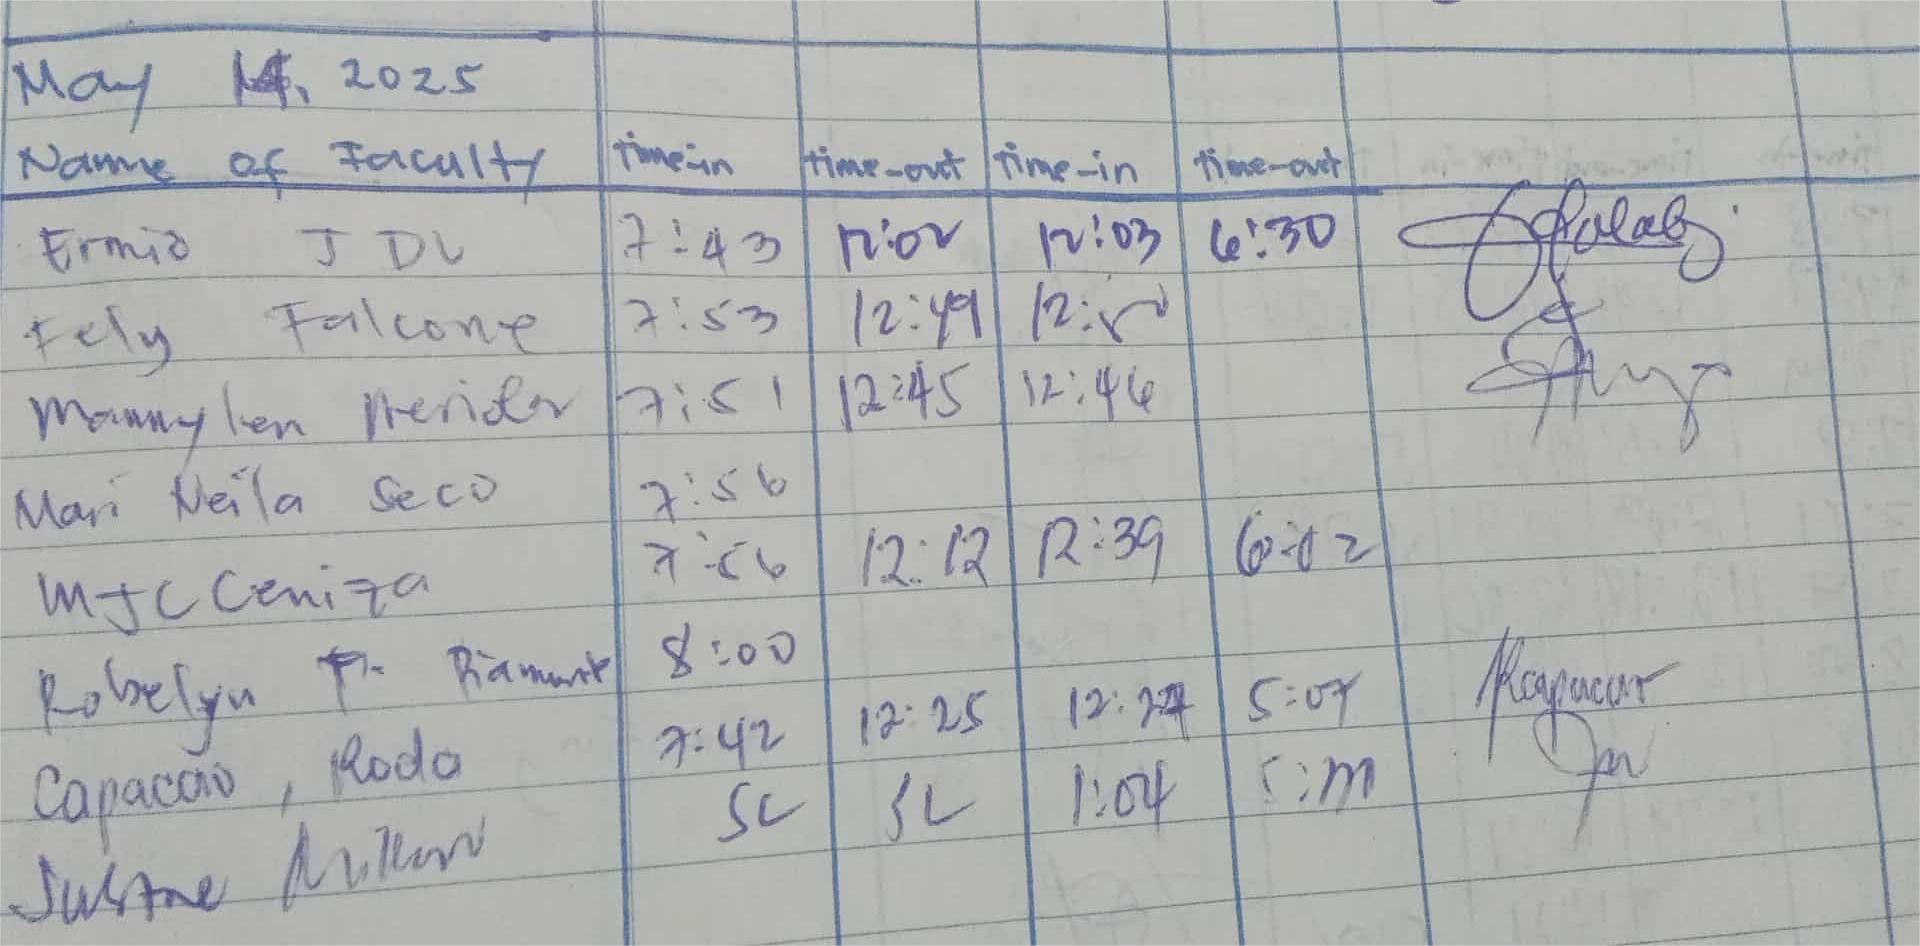 May 14, 2025
Name of Faculty time-in time-out time-in time-out
Ermio J DL 7:43 12:02 12:03 6:30
Fely Falcone 7:53 12:49 12:50
Mannylen Merida 7:51 12:45 12:46
Mari Neila Seco 7:56
MJC Ceniza 7:56 12:12 12:39 6:02
Robelyn P. Diamante 8:00
Capacao, Roda 7:42 12:25 12:27 5:07
SL SL 1:04